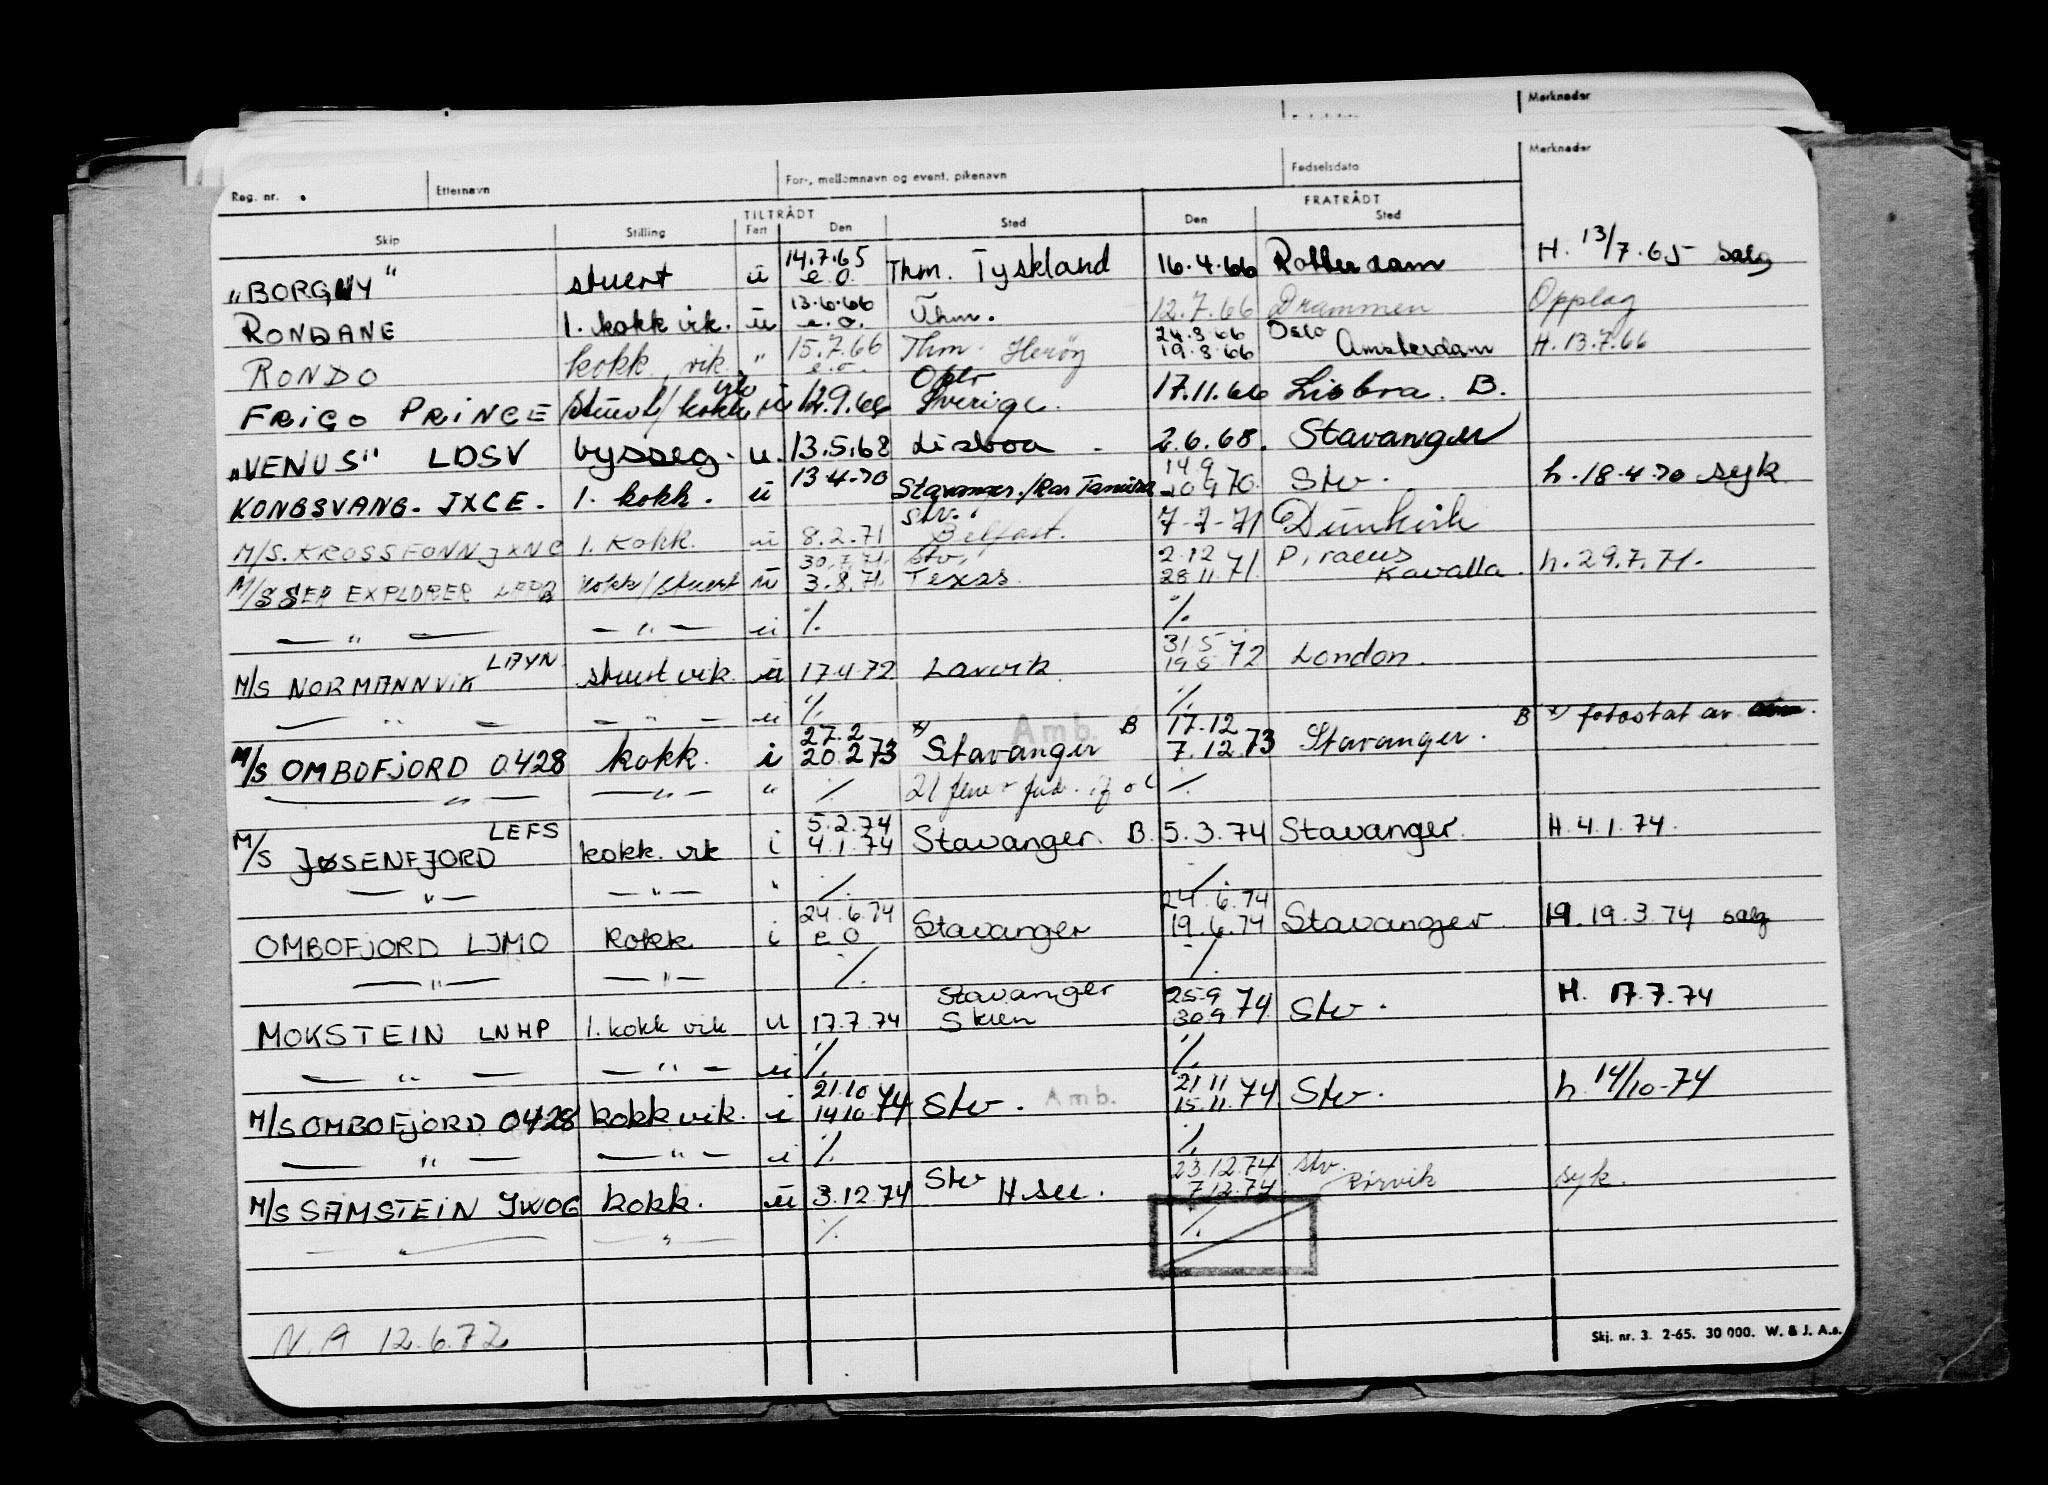 Merknader
Merknader
Reg. nr. Etternavn For-, mellomnavn og event. pikenavn Fødselsdato
TILTRÅDT FRATRÅDT
Skip Stilling Fart Den Sted Den Sted
14.7.65
"BORGNY" stuert u e.o. Thm. Tyskland 16.4.66 Rotterdam H. 13/7.65 salg
13.6.66
RONDANE 1. kokk vik. u e.o. Thm. 12.7.66 Drammen Opplag
15.7.66 24.8.66 Oslo
RONDO kokk vik. " e.o. Thm. Herøy 19.8.66 Amsterdam H. 13.7.66
vik Oslo
FRIGO PRINCE stuert/kokk u 12.9.66 Sverige. 17.11.66 Lisboa. B.
"VENUS" LDSV bysseg. u. 13.5.68 Lisboa 2.6.68. Stavanger
14.9
KONGSVANG. JXCE. 1. kokk. u 13.4.70 Stavanger/Ras Tanura 70 Stv. h. 18.4.70 syk
Stv.
M/S. KROSSFONN JXNC 1. Kokk. u 8.2.71 Belfast. 7-7-71 Dunkirk
30.7.71. Stv. 2.12 Piraeus
M/S SEA EXPLORER kokk/stuert u 3.8.71. Texas 28.11.71. Kavalla. h. 29.7.71.
— " — — " — u % %
LAYN. 31.5
M/S NORMANNVIK stuert vik. u 17.4.72 Larvik 19.5 72 London.
— " — — " — u % %
27.2 *) Amb. B 17.12 B *) fotostat av
M/S OMBOFJORD 0428 kokk. i 20.2.73 Stavanger 7.12.73 Stavanger.
— " — — " — " % 21 %
LEFS 5.2.74
M/S JØSENFJORD kokk. vik i 4.1.74 Stavanger. B. 5.3.74 Stavanger. H. 4.1.74.
— " — — " — " % %
24.6.74 24.6.74
OMBOFJORD LJMO Kokk i e o Stavanger 19.6.74 Stavanger. H. 19.3.74 salg
— " — — " — % %
Stavanger 25.9
MOKSTEIN LNHP 1. kokk vik u 17.7.74 Skien 30.9 74 Stv. H. 17.7.74
— " — — " — u % %
21.10 21.11
M/S OMBOFJORD 0428 kokk vik. i 14.10.74 Stv. Amb. 15.11.74 Stv. h. 14/10-74
— " — — " — i % %
Stv 23.12.74 Stv.
M/S SAMSTEIN JWOG kokk. u 3.12.74 H.su. 7.12.74 Rørvik syk.
— " — — " — % %
N.A 12.6.72
Skj. nr. 3. 2-65. 30 000. W. & J. A.s.